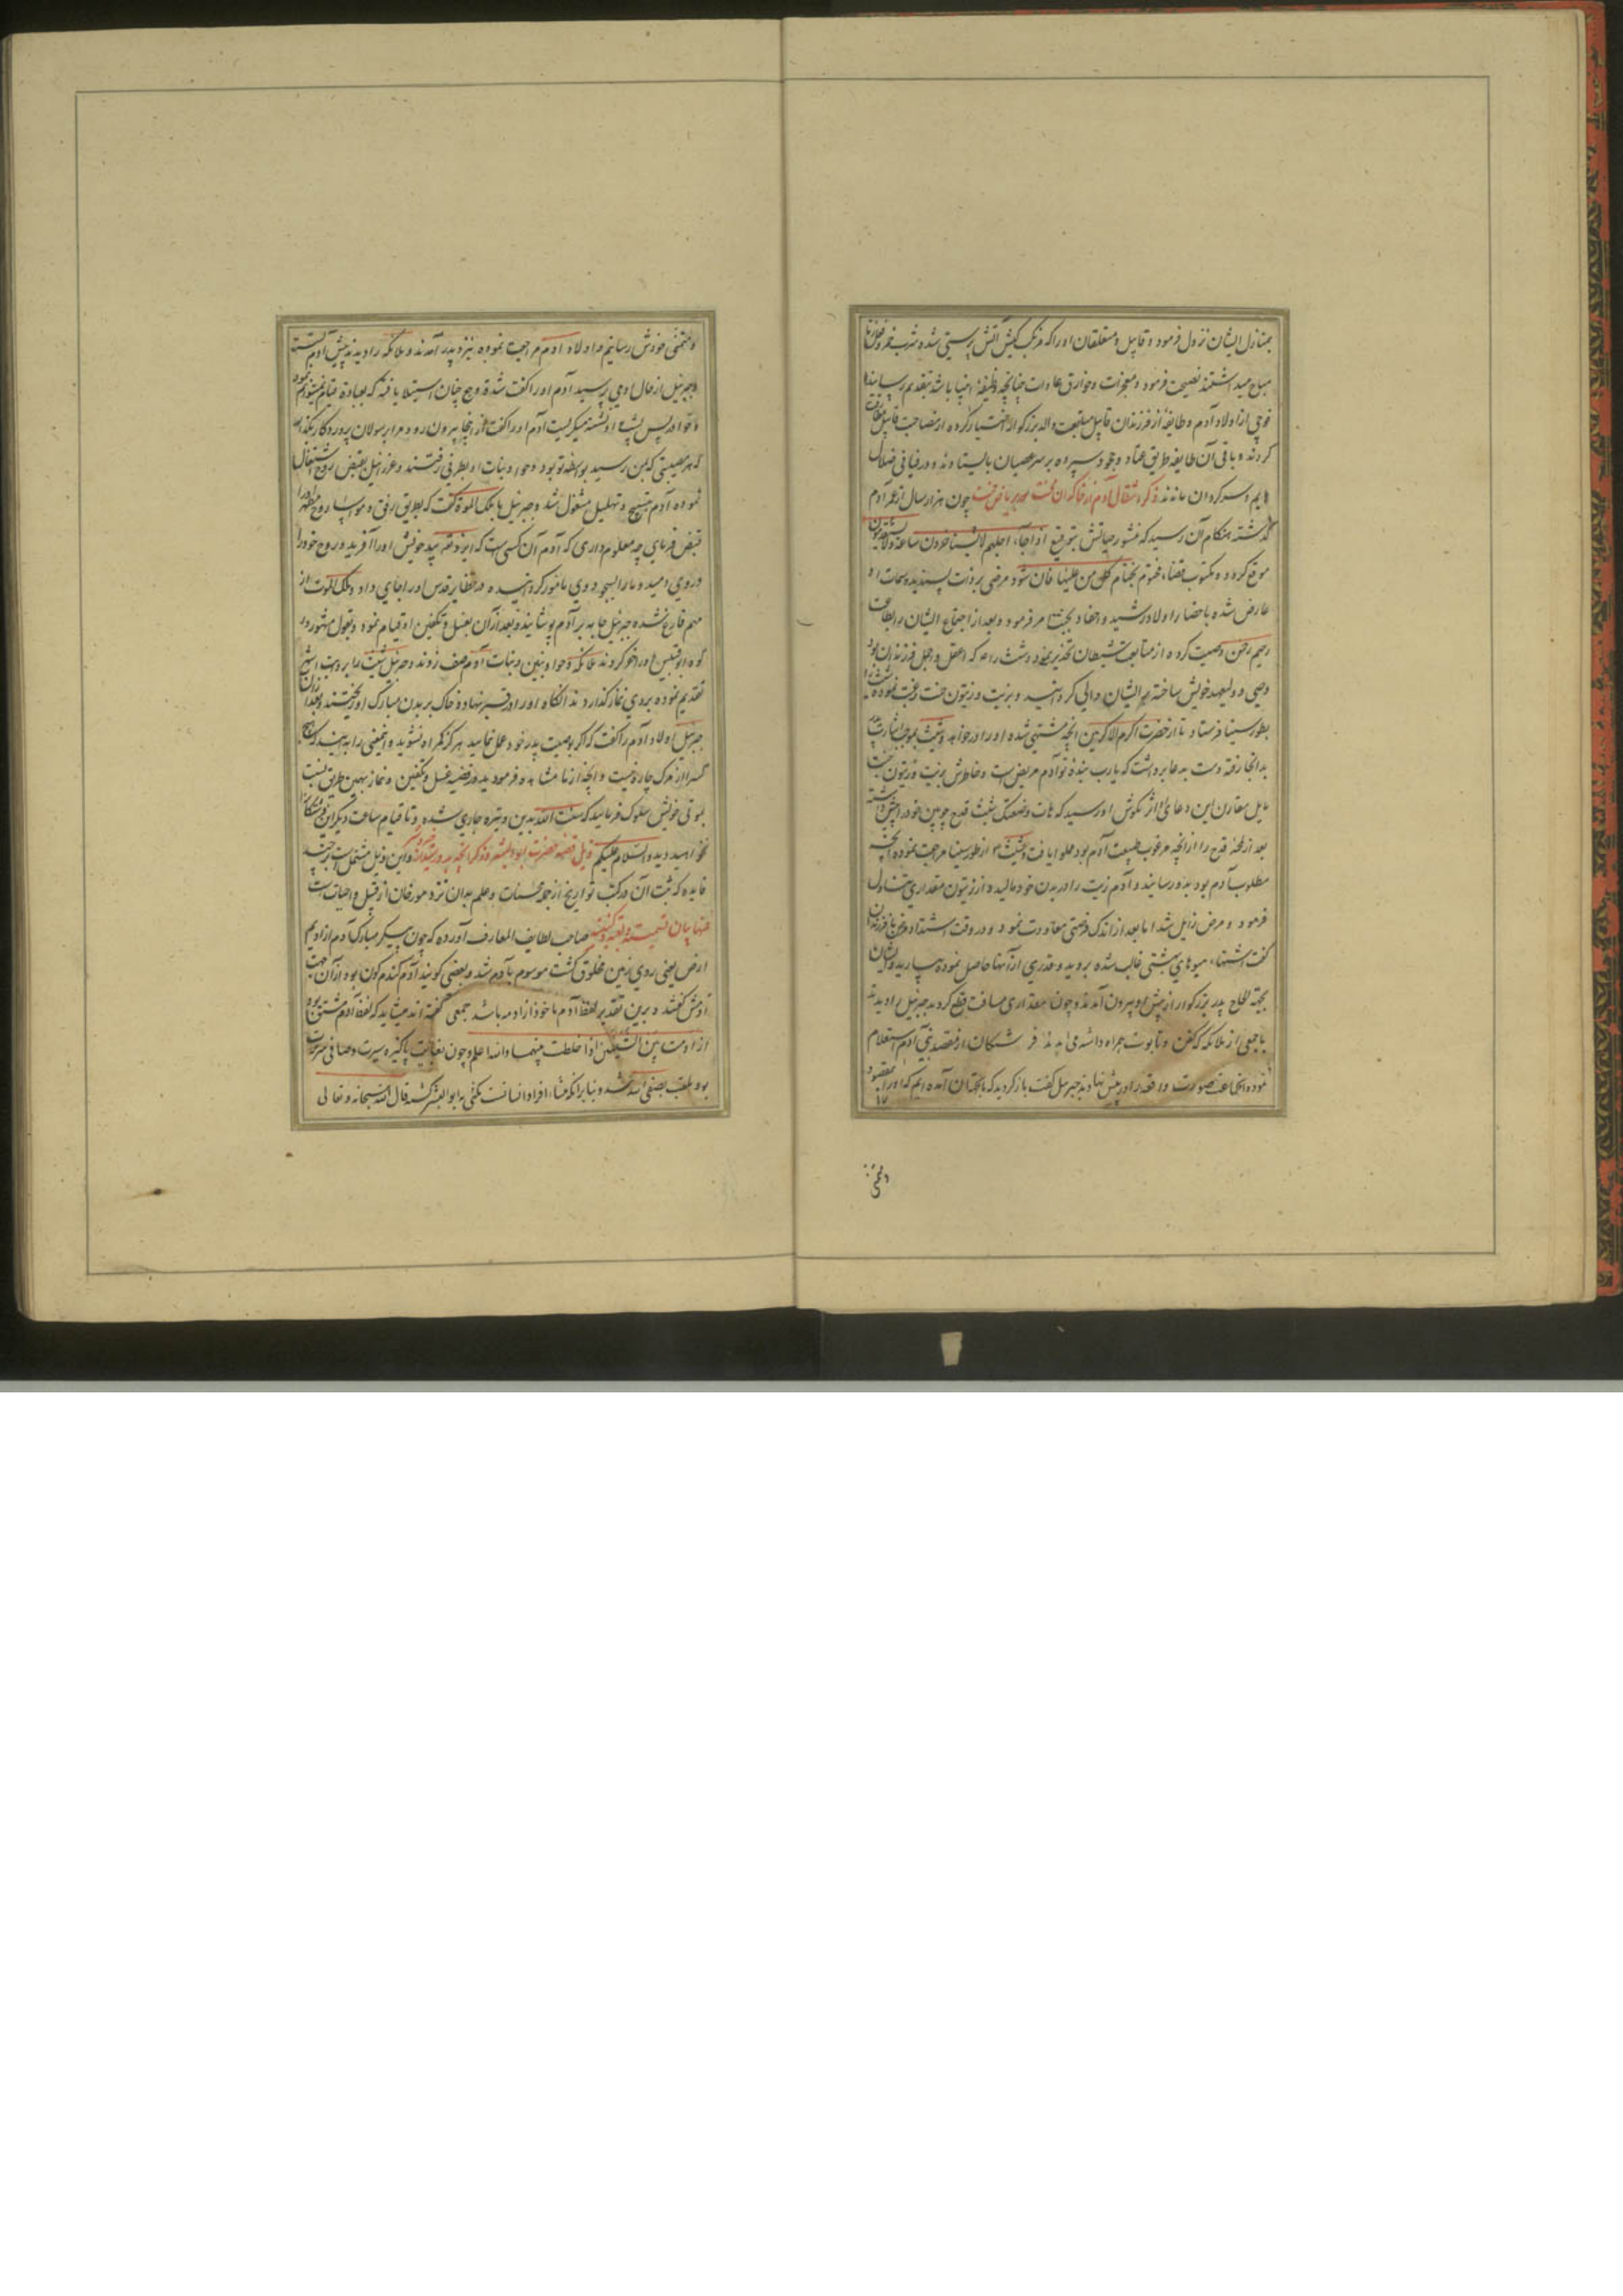 بمنازل ایشان نزول فرموده قابیل و متعلقان او را که مرتکب کیش آتش پرستی شده شرب خمر و
مباح میداشتند نصیحت فرمود و معجزات و خوارق عادات چنانچه وظیفه انبیا باشد بتقدیم رسانید
فوجی از اولاد آدم و طایفه از فرزندان قابیل متابعت والد بزرگوار اختیار کرده از مصاحبت قابیل
کردند و باقی آن طایفه طریق عناد و جحود سپرده بر سر عصیان بایستادند و در فیافی ضلال
هایم و سرگردان ماندند ذکر انتقال آدم از خاکدان محنت بریاض جنت چون هزار سال از عمر آدم
گذشته هنگام آن رسید که منشور حیاتش بتوقیع اذا جاء اجلهم لا یستاخرون ساعة ولا یستقدمون
موقع گردد و مکتوب قضاء مختوم بختام کل من علیها فان شود مرضی بر ذات پسندیده سمات او
عارض شده باحضار اولاد رشید و احفاد امر فرمود و بعد از اجتماع ایشان را بطاعت
رحیم رحمن وصیت کرده از متابعت شیطان تحذیر نمود و شیث را که اعقل و اجمل فرزندان بود
وصی و ولیعهد خویش ساخته بر ایشان والی گردانید و بزیت و زیتون جنت رغبت نموده شیث را
بطور سینا فرستاد تا از حضرت اکرم الاکرمین آنچه مشتهی شده او را درخواهد و شیث بموجب اشارت
بدانجا رفته دست بدعا برداشت که یا رب بنده تو آدم مریض است و خاطرش بزیت و زیتون جنت
مایل مقارن این دعا ندائی بگوش او رسید که هات قصعتک شیث قدح چوبین خود را پیش داشته
بعد از لحظه قدح را از آنچه مرغوب طبیعت آدم بود مملو یافت و شیث از طور سینا مراجعت نموده آنچه
مطلوب آدم بود بدو رسانید و آدم زیت را در بدن خود مالیده از زیتون مقداری تناول
فرمود و مرض زایل شد اما بعد از اندک فرصتی معاودت نمود و در وقت اشتداد مرض با فرزندان
گفت اشتهاء میوهای بهشتی غالب شده بروید و قدری از آنها حاصل نموده بیارید و ایشان
بجهة انجاح پدر بزرگوار از پیش او بیرون آمدند و چون مقداری مسافت قطع کردند جبرئیل را دیدند
با جمعی از ملائکه که کفن و تابوت همراه داشته می آیند فرشتگان از مقصد بنی آدم استعلام
نموده انجماعت صورت واقعه را در میش نهادند جبرئیل گفت باز گردید که ما بجهة آن آمده ایم که او را بمقصود
و متمنی
و متمنی خودش رسانیم و اولاد آدم مراجعت نموده نزد پدر آمدند و ملائکه را دیدند پیش آدم نشسته
و جبرئیل از حال او می پرسید آدم او را گفت شدة وجع چنان استیلا یافته که بعبادة قیام نمیتوانم نمود
و حوا در پس پشت او نشسته میگریست آدم او را گفت از اینجا بیرون رو و مرا برسولان پروردگار بگذار
که هر مصیبتی که بمن رسید بواسطه تو بود و حوا و بنات او بطرفی رفتند و عزرائیل بقبض روح اشتغال
نموده آدم بتسبیح و تهلیل مشغول شد و جبرئیل با ملک الموت گفت که بطریق رفق و مواسا روح مطهر او را
قبض فرمای چه معلوم داری که آدم آن کسی است که ایزد تعالی بید خویش او را آفرید و روح خود را
در وی دمید و ما را بسجود وی مامور گردانیده در حظایر قدس او را جای داد و ملک الموت از
مهم فارغ نشده جبرئیل جامه بر آدم پوشانید و بعد از آن بغسل و تکفین او قیام نموده و بقول مشهور در
کوه ابوقبیس او را دفن کردند ملائکه و حوا و بنین و بنات آدم صف زدند و جبرئیل شیث را
تقدیم نموده بروی نماز گذاردند آنگاه او را در قبر نهاده خاک بر بدن مبارک او ریختند بعد از آن
جبرئیل اولاد آدم را گفت که اگر بوصیت پدر خود عمل نمایید هرگز گمراه نشوید و یقین بدانید که هیچ
کس را از مرگ چاره نیست و آنچه از ما مشاهده فرمودید در قضیه غسل و تکفین و نماز بهمین طریق نسبت
بموتی خویش سلوک فرمایید که سنت الله بدین وتیره جاری شده و تا قیام ساعت دیگر این فرشتگان را
نخواهید دید والسلام علیکم ذیل قضیه حضرت ابوالبشر و ذکر آنچه و این ذیل مشتمل است بر چند
فایده که ثبت آن در کتب تواریخ از جمله محسنات و علم بدان نزد مورخان از قبیل واجبات است
منها بیان تسمیه و لقب و کنیت صاحب لطایف المعارف آورده که چون پیکر مبارک آدم از ادیم
ارض یعنی روی زمین مخلوق گشت موسوم بآدم شد و بعضی گویند آدم گندم گون بود از آن جهت
آدمش گفتند و برین تقدیر لفظ آدم ماخوذ از ادمه باشد جمعی گفته اند میشاید که لفظ آدم مشتق بود
از ادمت بین الشیئین اذا خلطت بینهما والله اعلم و چون بغایت پاکیزه سیرت و صافی سریرت
بود ملقب بصفی الله شد و بنابر آنکه منشاء افراد انسانست مکنی به ابوالبشر گشته قال الله سبحانه و تعالی